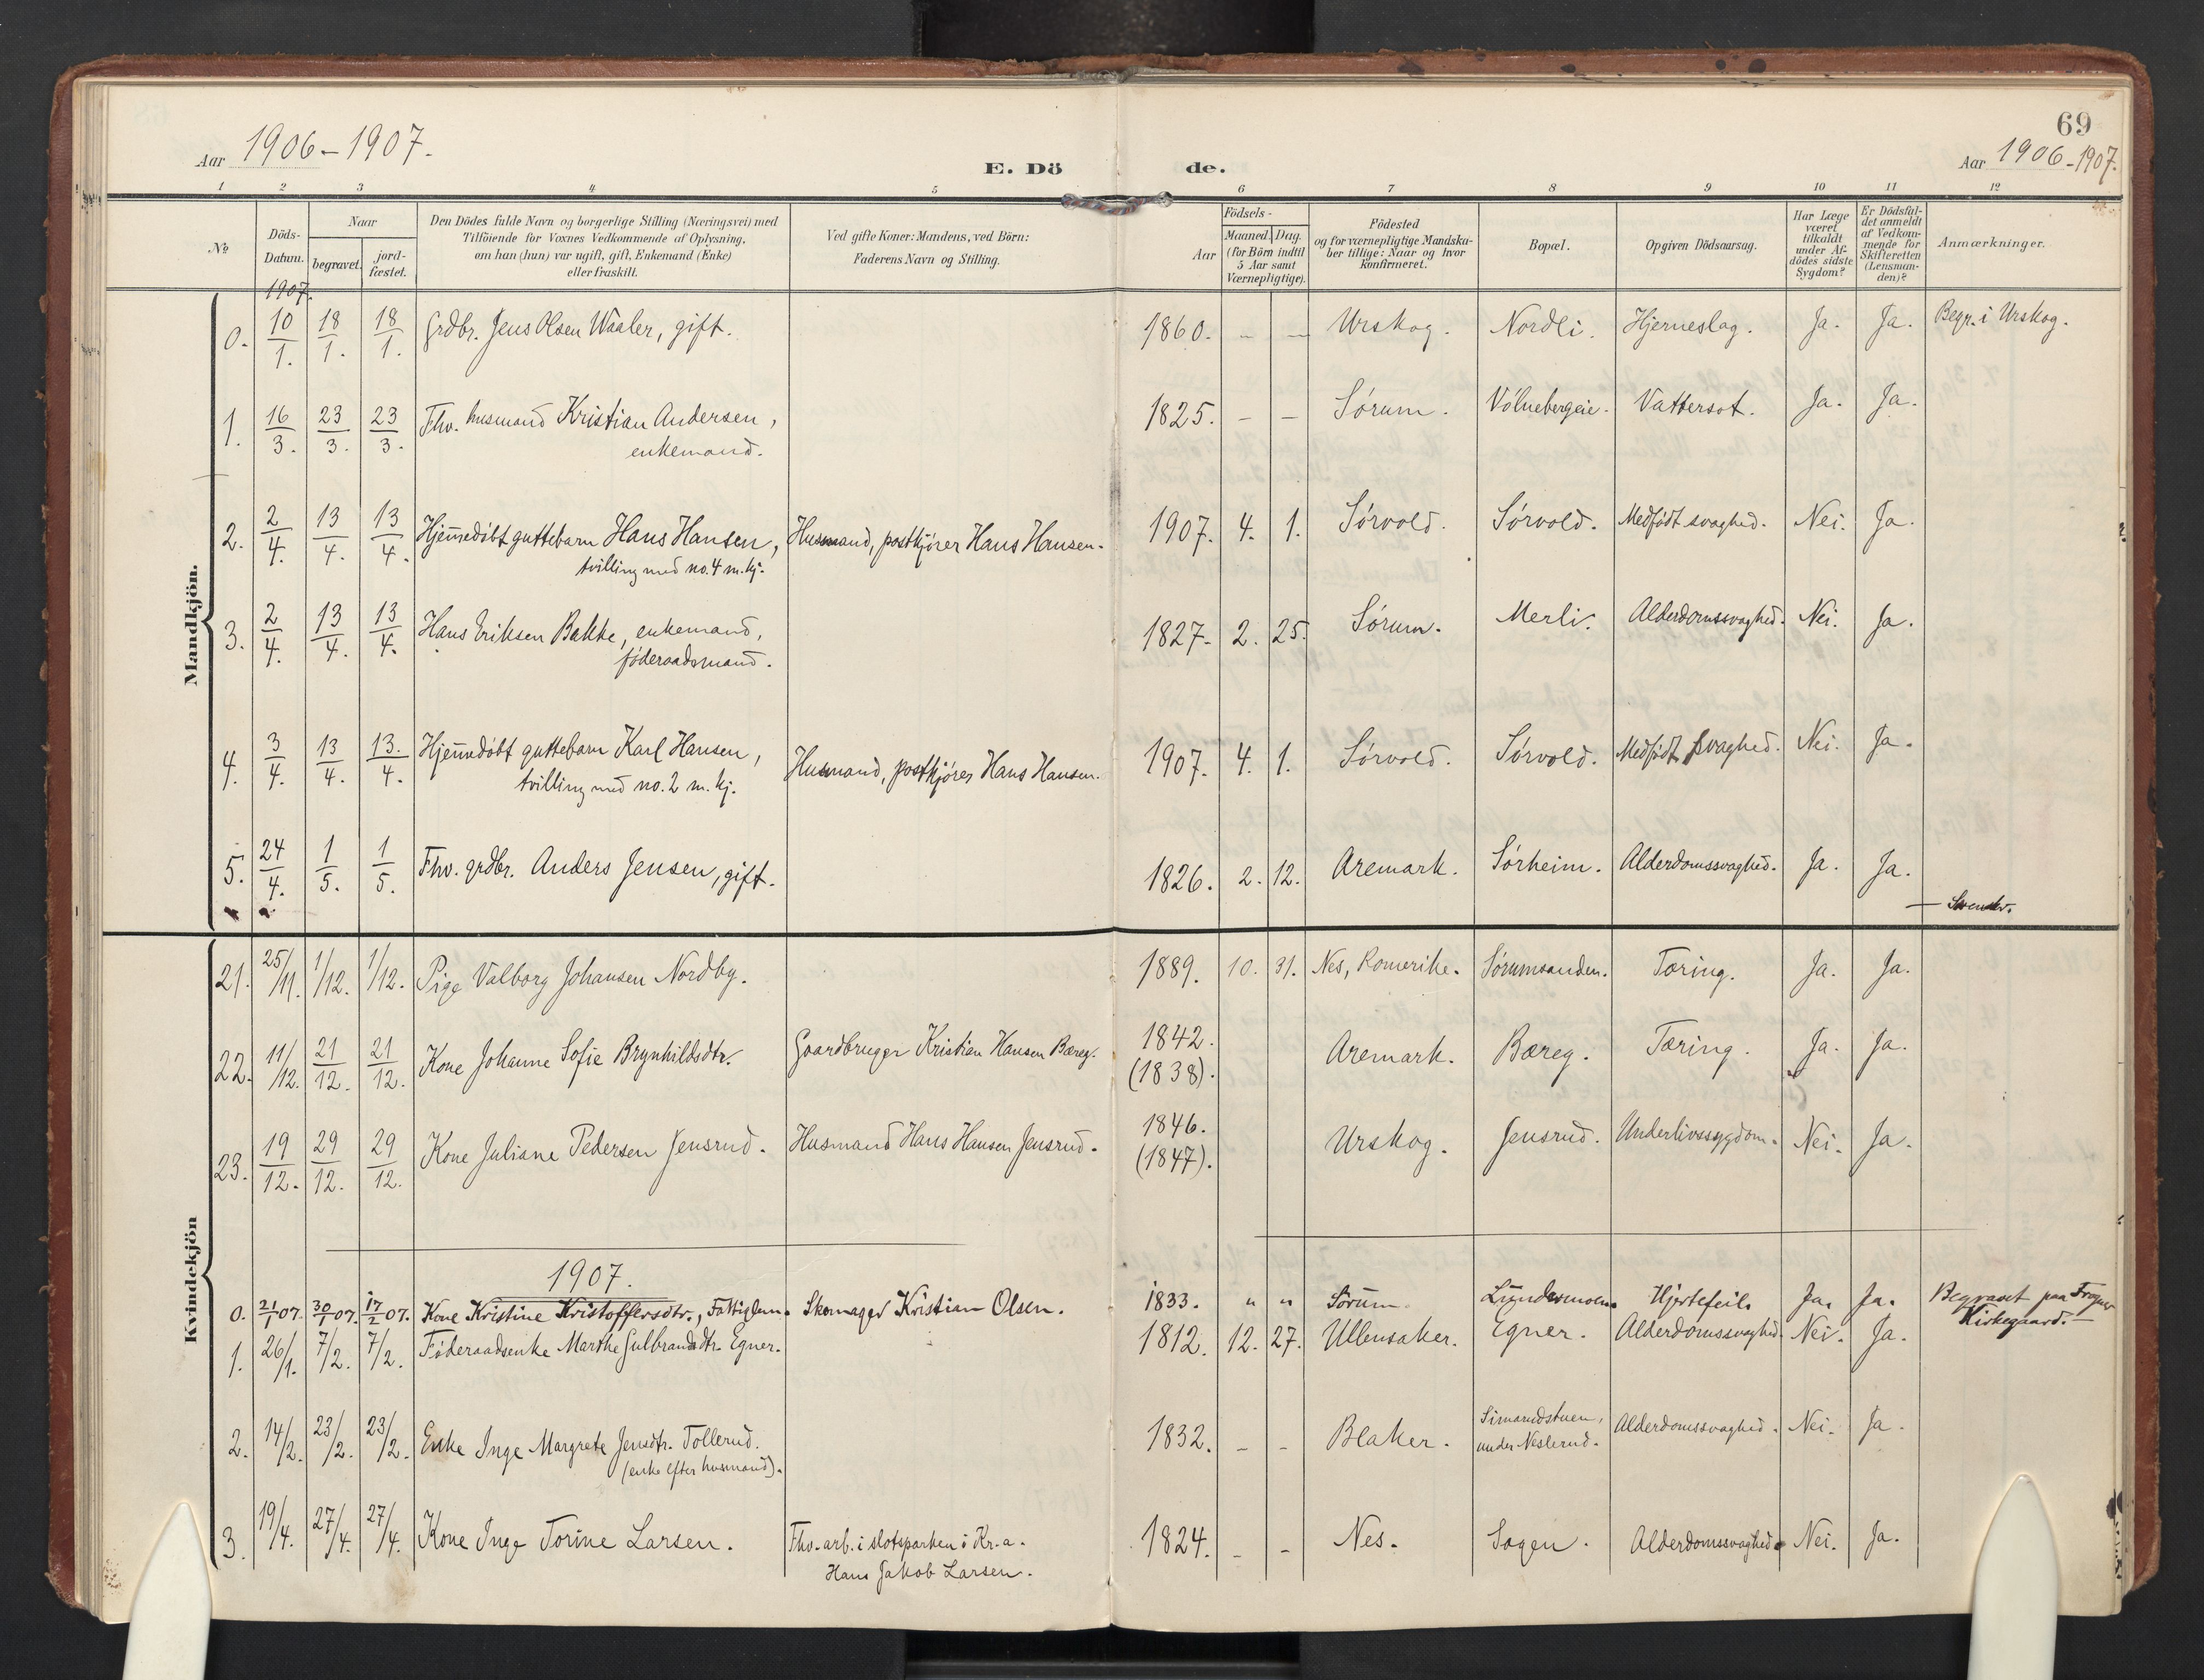 69
Aar 1906-1907.
E. Dö de.
Aar 1906-1907.
1 2 3 4 5 6 7 8 9 10 11 12
No
Döds-Datum.
Naar
begravet.
jord-fæstet.
Den Dödes fulde Navn og borgerlige Stilling (Næringsvei) med
Tilföiende for Voxnes Vedkommende af Oplysning,
om han (hun) var ugift, gift, Enkemand (Enke)
eller fraskilt.
Ved gifte Koner: Mandens, ved Börn:
Faderens Navn og Stilling.
Födsels-
Aar
Maaned. Dag.
(for Börn indtil
5 Aar samt
Værnepligtige).
Födested
og for værnepligtige Mandska-
ber tillige: Naar og hvor
konfirmeret.
Bopæl.
Opgiven Dödsaarsag.
Har Læge
været
tilkaldt
under Af-
dödes sidste
Sygdom?
Er Dödsfal-
det anmeldt
af Vedkom-
mende for
Skifteretten
(Lensman-
den)?
Anmærkninger.
Mandkjön.
1907.
0. 10/1. 18/1. 18/1. Grdbr. Jens Olsen Waaler, gift. 1860. - - Urskog. Nordli. Hjerneslag. Ja. Ja. Begr. i Urskog.
1. 16/3. 23/3. 23/3. Fhv. husmand Kristian Andersen, 1825. - - Sørum. Vølnebergeie. Vattersot. Ja. Ja.
enkemand.
2. 2/4. 13/4. 13/4. Hjemmedøbt guttebarn Hans Hansen, Husmand, postkjører Hans Hansen. 1907. 4. 1. Sørvold. Sørvold. Medfødt svaghed. Nei. Ja.
tvilling med no. 4 m. kj.
3. 2/4. 13/4. 13/4. Hans Eriksen Bakke, enkemand, 1827. 2. 25. Sørum. Merli. Alderdomssvaghed. Nei. Ja.
føderaadsmand.
4. 3/4. 13/4. 13./4. Hjemmedøbt guttebarn Karl Hansen, Husmand, postkjører Hans Hansen. 1907. 4. 1. Sørvold. Sørvold. Medfødt svaghed. Nei. Ja.
tvilling med no. 2 m. kj.
5. 24/4. 1/5. 1/5. Fhv. grdbr. Anders Jensen, gift. 1826. 2. 12. Aremark. Sørheim. Alderdomssvaghed. Ja. Ja.
Kvindekjön
21. 25/11. 1/12. 1/12. Pige Valborg Johansen Nordby. 1889. 10. 31. Nes, Romerike. Sørumsanden. Tæring. Ja. Ja.
22. 11/12. 21/12. 21/12. Kone Johanne Sofie Brynhildsdtr. Gaardbruger Kristian Hansen Bæreg. 1842. (1838). Aremark. Bæreg. Tæring. Ja. Ja.
23. 19/12. 29/12. 29/12. Kone Juliane Pedersen Jensrud. Husmand Hans Hansen Jensrud. 1846. (1847). Urskog. Jensrud. Underlivssygdom. Nei. Ja.
1907.
0. 21/1 07. 30/1 07. 17/2 07. Kone Kristine Kristoffersdtr., Fattiglem. Skomager Kristian Olsen. 1833. " " Sørum. Lundermoen. Hjertefeil. Ja. Ja. Begravet paa Frogner
Kirkegaard.
1. 26/1. 7/2. 7/2. Føderaadsenke Marthe Gulbrandsdtr. Egner. 1812. 12. 27. Ullensaker. Egner. Alderdomssvaghed. Nei. Ja.
2. 14/2. 23/2. 23/2. Enke Inge Margrete Jensdtr. Tollerud. 1832. - - Blaker. Simarudstuen, under Neslerud. Alderdomssvaghed. Nei. Ja.
(enke efter husmand).
3. 19/4. 27/4. 27/4. Kone Inge Torine Larsen. Fhv. arb. i slotsparken i Kr.a. 1824. - - Nes. Sagen. Alderdomssvaghed. Nei. Ja.
Hans Jakob Larsen.